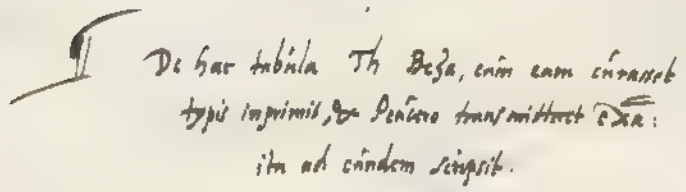 De hac tabula Th Beza, cum eam curasset
typis inprimi, & Peucero transmitteret
ita ad eundem scripsit.